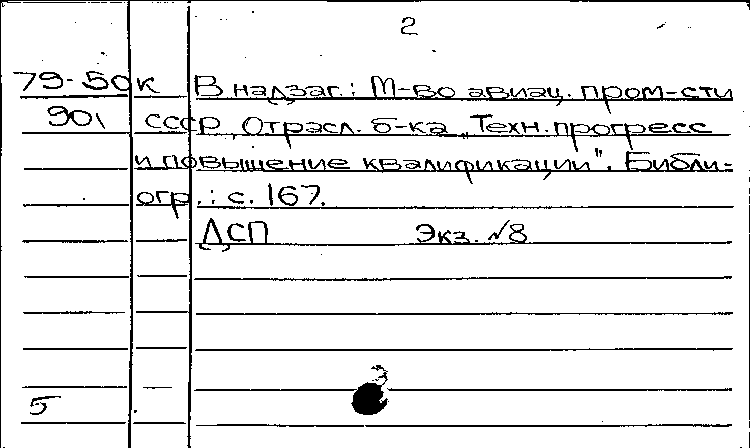 2
79-50к В надзаг.: М-во авиац. пром-сти
901 СССР, Отрасл. б-ка „Техн. прогресс
и повышение квалификации". Библи-
огр.: с. 167.
ДСП Экз. №8
5